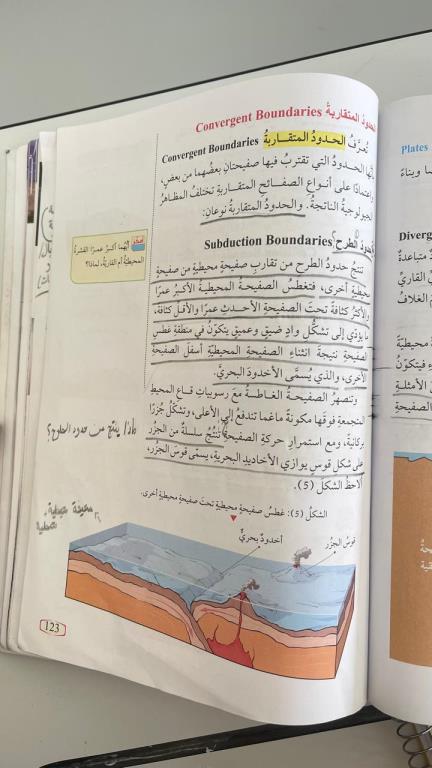 الحدودُ المتقاربةُ Convergent Boundaries
تُعرَّفُ الحدودُ المتقاربةُ Convergent Boundaries
بأنّها الحدودُ التي تقتربُ فيها صفيحتانِ بعضُهما من بعضٍ،
واعتمادًا على أنواعِ الصفائحِ المتقاربةِ تختلفُ المظاهرُ
الجيولوجيةُ الناتجةُ. والحدودُ المتقاربةُ نوعانِ:
حدودُ الطرحِ Subduction Boundaries
تنتجُ حدودُ الطرحِ من تقاربِ صفيحةٍ محيطيةٍ من صفيحةٍ
محيطيةٍ أخرى، فتغطسُ الصفيحةُ المحيطيةُ الأكبرُ عمرًا
والأكثرُ كثافةً تحتَ الصفيحةِ الأحدثِ عمرًا والأقلِّ كثافةً،
ما يؤدّي إلى تشكُّلِ وادٍ ضيقٍ وعميقٍ يتكوّنُ في منطقةِ غطسِ
الصفيحةِ نتيجةَ انثناءِ الصفيحةِ المحيطيّةِ أسفلَ الصفيحةِ
الأخرى، والذي يُسمّى الأخدودَ البحريَّ.
وتنصهرُ الصفيحةُ الغاطسةُ معَ رسوبياتِ قاعِ المحيطِ
المتجمعةِ فوقَها مكونةً ماغما تندفعُ إلى الأعلى، وتشكّلُ جُزُرًا
بركانيةً، ومع استمرارِ حركةِ الصفيحةِ تَنتُجُ سلسلةٌ من الجزرِ
على شكلِ قوسٍ يوازي الأخاديدَ البحريةَ، يسمّى قوسَ الجزرِ،
ألاحظُ الشكلَ (5).
أفكر أيُّهما أكبرُ عمرًا القشرةُ
المحيطيةُ أم القاريةُ، لماذا؟
ماذا ينتج من حدود الطرح؟
محيطية
الشكلُ (5): غطسُ صفيحةٍ محيطيةٍ تحتَ صفيحةٍ محيطيةٍ أخرى.
أخدودٌ بحريٌّ
قوسُ الجزرِ
123
Plates
وبناءً
Diverg
متباعدةٌ
الغلافُ
محيطيّة
فيتكوّنُ
الصفيحة